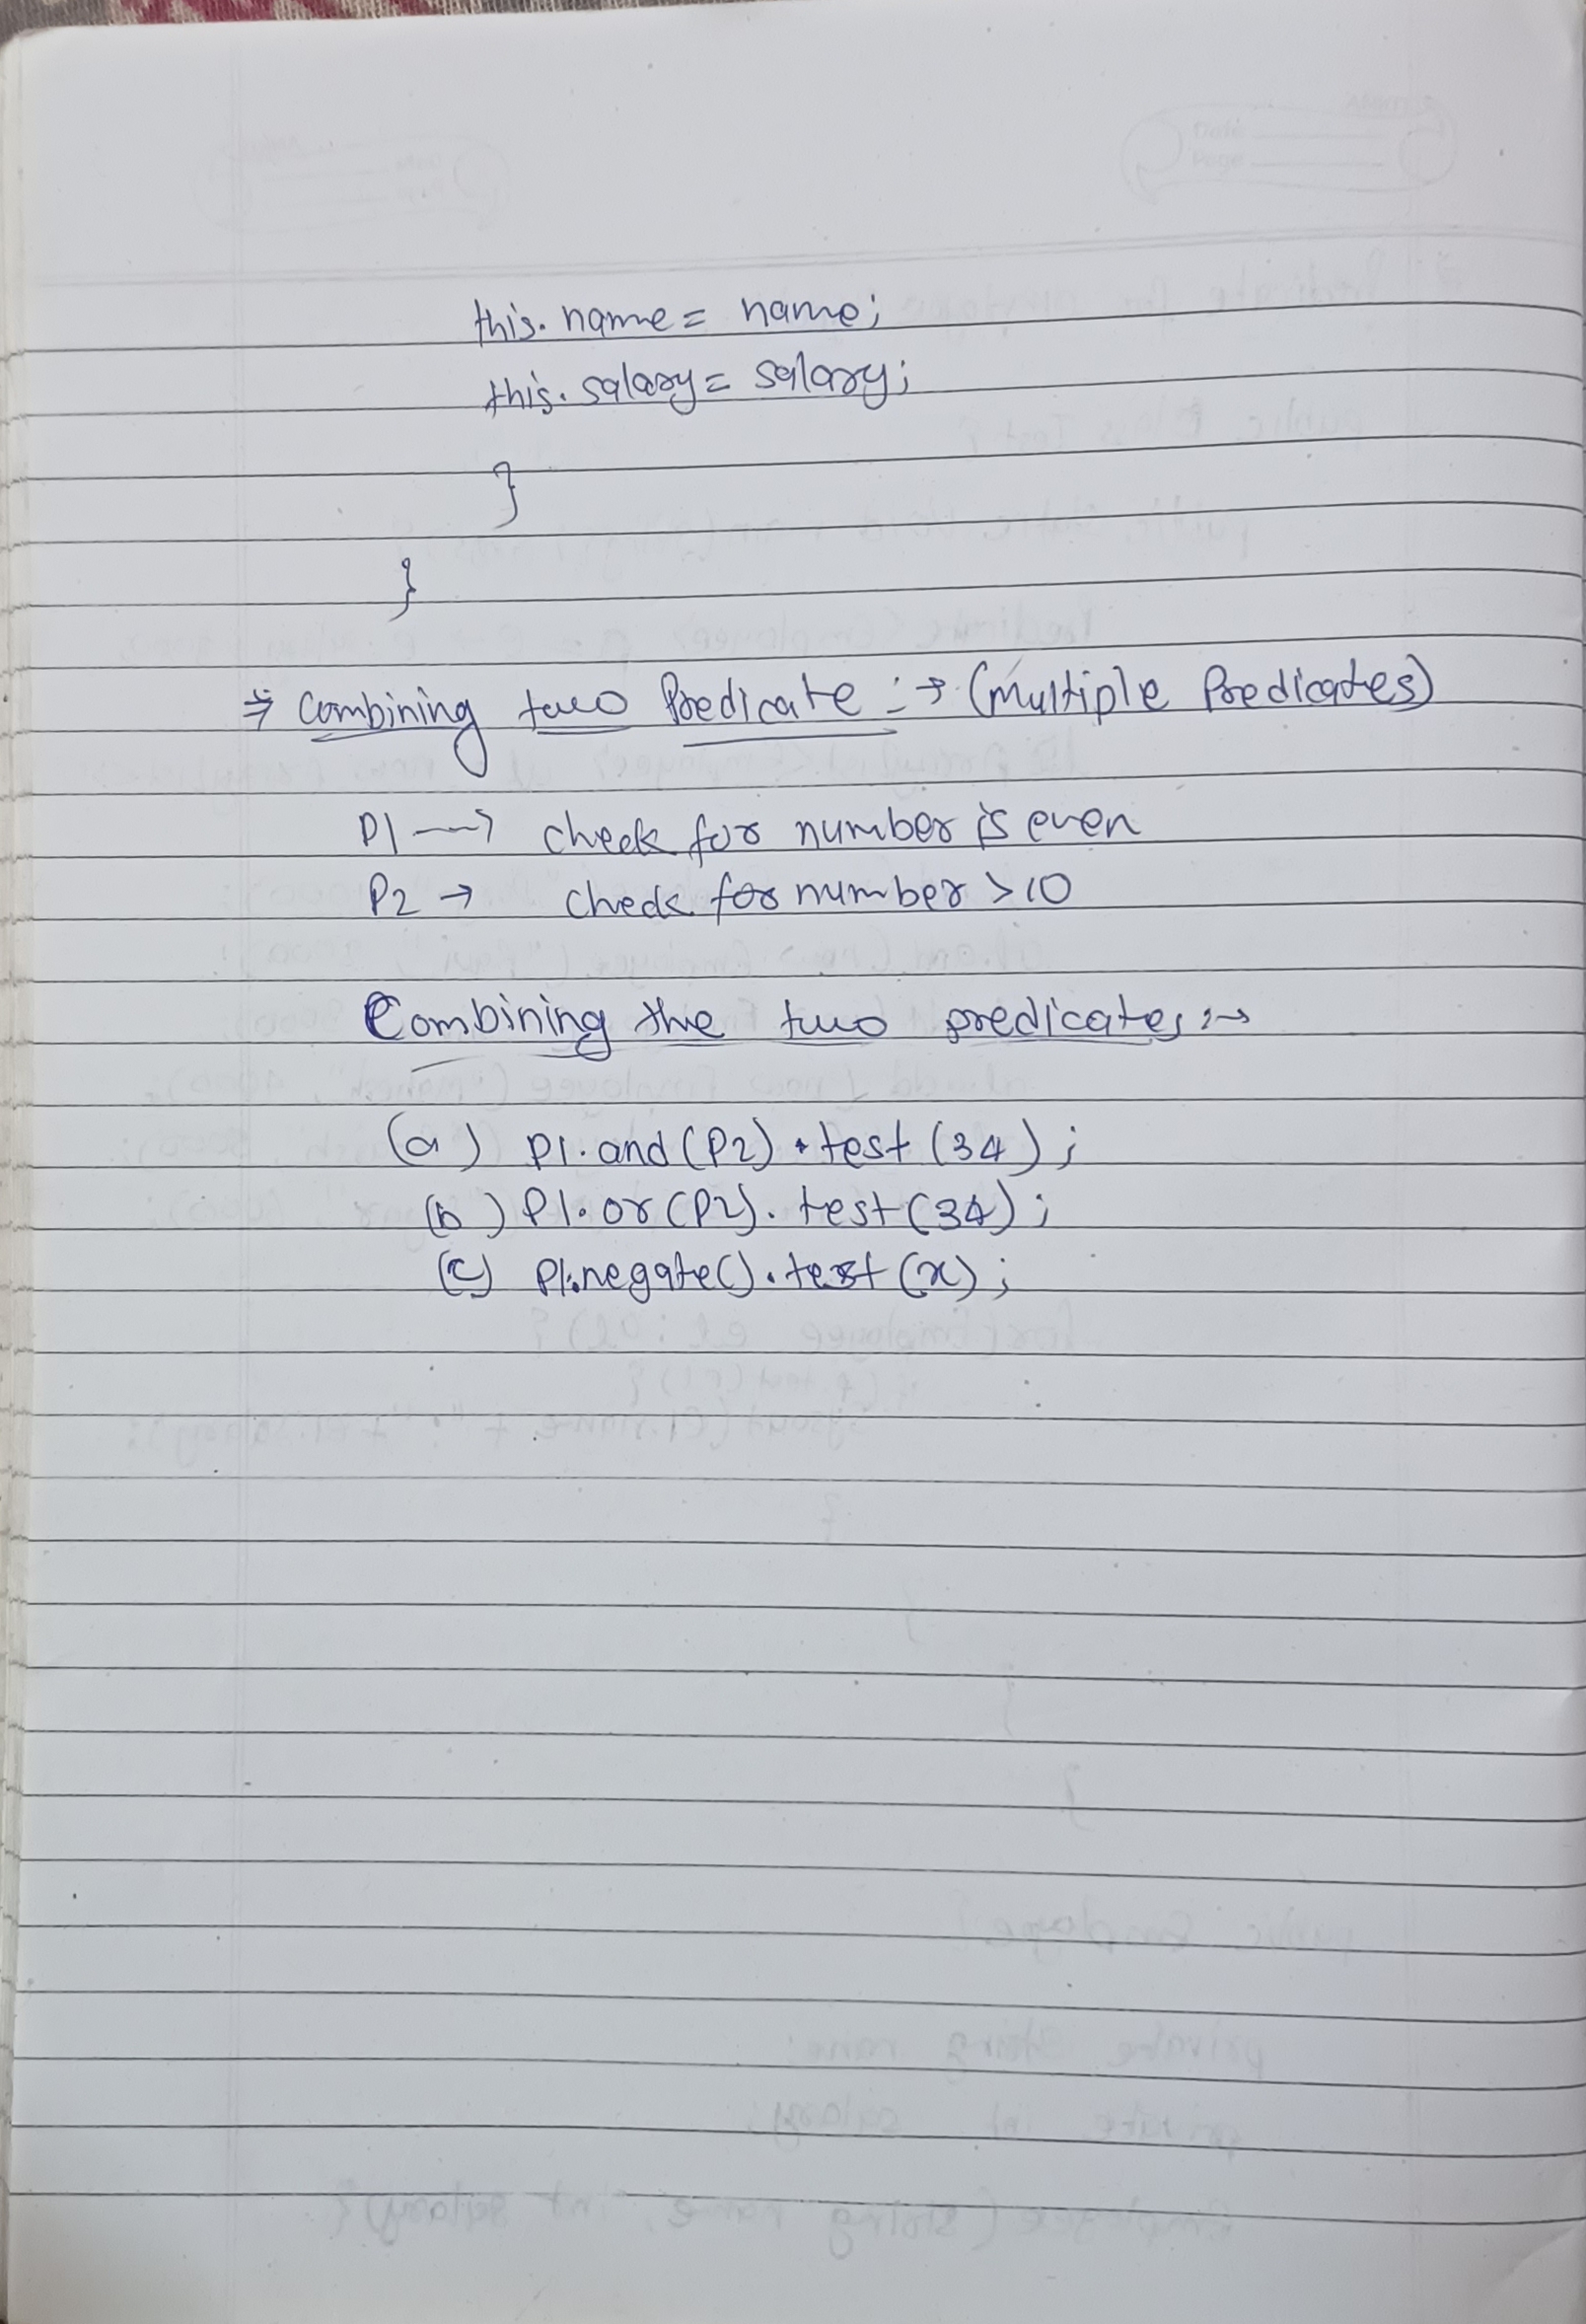 this.name = name;
this.salary = salary;
}
}
⇒ Combining two Predicate :→ (Multiple Predicates)
P1 → check for number is even
P2 → check for number > 10
Combining the two predicates :→
(a) P1.and(P2).test(34);
(b) P1.or(P2).test(34);
(c) P1.negate().test(x);